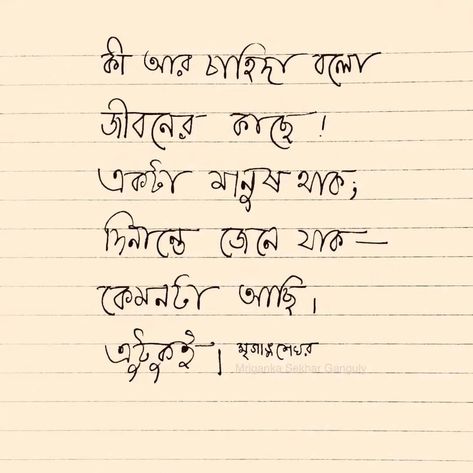 কী আর চাহিদা বলো
জীবনের কাছে !
একটা মানুষ থাক,
দিনান্তে জেনে যাক —
কেমনটা আছি।
এটুকুই। মৃগাঙ্কশেখর
Mriganka Sekhar Ganguly